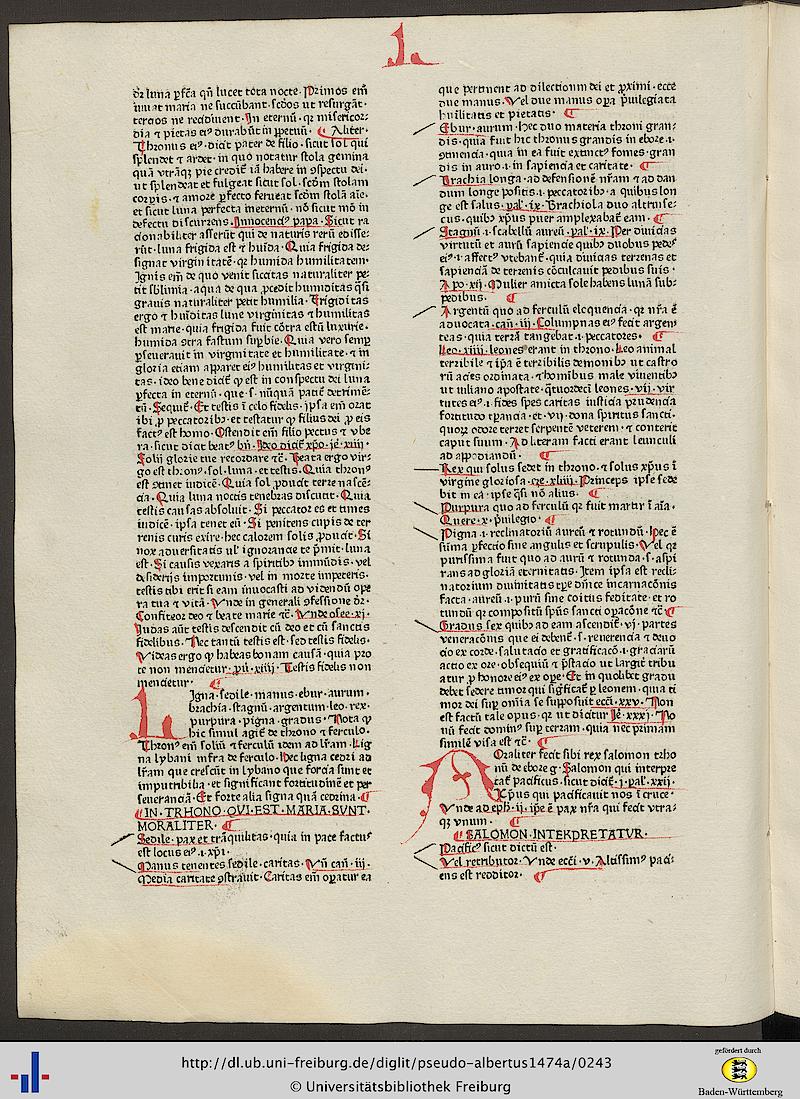 L
dr luna pfca qn lucet tota nocte. Primos em
iuuat maria ne succūbant. scdos ut resurgāt.
tercios ne recidiuent. In eternū. qr misericor-
dia et pietas eius durabūt in ppetuū. Aliter.
Thronus eius. dicit pater de filio. sicut sol qui
splendet et ardet. in quo notatur stola gemina
quā vtrāqz pie credit iā habere in gspectu dei.
ut splendeat et fulgeat sicut sol. scdm stolam
corpis. et amore pfecto ferueat scdm stolā aīe.
et sicut luna perfecta ineternū. nō sicut mō in
defectu discurrens. Innocencius papa. Sicut ra
cionabiliter asserūt qui de naturis rerū edisse-
rūt. luna frigida est et huīda. Quia frigida de-
signat virginitatē. qr humida humilitatem.
Ignis em de quo venit siccitas naturaliter pe-
tit sblimia. aqua de qua pcedit humiditas qsi
grauis naturaliter petit humilia. Frigiditas
ergo et huīditas lune virginitas et humilitas
est marie. quia frigida fuit cōtra estū luxurie.
humida gtra fastum supbie. Quia vero semp
pseuerauit in virginitate et humilitate. et in
gloria etiam apparet eius humilitas et virgini-
tas. ideo bene dicit q est in conspectu dei luna
pfecta in eternū. que. s. nūquā patit detrimē-
tū. Sequit. Et testis ī celo fidelis. ipsa em orat
ibi p peccatoribus. et testatur q filius dei p eis
factus est homo. Ostendit em filio pectus et vbe
ra. sicut dicit beatus bn. Ideo dicit xpo. ie. xiiii.
Solij glorie tue recordare tc. Beata ergo vir-
go est thronus. sol. luna. et testis. Quia thronus
est. Quia sol pducit terre nascē-
cia. Quia luna noctis tenebras discutit. Quia
testis causas absoluit. Si peccator es et times
iudicē. ipsa tenet eū. Si penitens cupis de ter
renis curis exire. hec calorem solis pducit. Si
nox aduersitatis ul ignorancie te pmit. luna
est. Si causis vexaris a spiritibus immūdis. vel
desiderijs importunis. vel in morte impeteris.
testis tibi erit si eam inuocasti ad videndū ope
ra tua et vitā. Vnde in generali gfessione dr.
Confiteor deo et beate marie tc. Vnde osee. xi.
Iudas aūt testis descendit cū deo et cū sanctis
fidelibus. Nec tantū testis est. sed testis fidelis.
Videas ergo q habeas bonam causā. quia pro
te non mencietur. pū. xiiij. Testis fidelis non
mencietur.
Ligna. sedile. manus. ebur. aurum.
brachia. stagnū. argentum. leo. rex.
purpura. pigna. gradus. Nota q
hic simul agit de throno et ferculo.
Thronus em soliū et ferculū idem ad lram. Lig
na lybani infra de ferculo. Hec ligna cedri ad
lram que crescūt in lybano que forcia sunt et
imputribilia. et significant fortitudinē et per
seueranciā. Et forte alia signa quā cedrina.
IN. TRHONO. QVI. EST. MARIA. SVNT.
MORALITER.
Sedile. pax et trāquilitas. quia in pace factus
est locus eius. i. xpi.
Manus tenentes sedile. caritas. Vn can. iij.
Media caritate gstrauit. Caritas em opatur ea
que pertinent ad dilectionem dei et pximi. ecce
due manus. Vel due manus opa puilegiata
huīlitatis et pietatis.
Ebur. aurum. Hec duo materia throni gran-
dis. quia fuit hic thronus grandis in ebore. i.
gtinencia. quia in ea fuit extinctus fomes. gran
dis in auro. i. in sapiencia et caritate.
Brachia longa. ad defensionē nram et ad dan
dum longe positis. i. peccatoribus. a quibus lon
ge est salus. pal. ix. Brachiola duo altrinse-
cus. quibus xpus puer amplexabat eam.
Stagnū. i. scabellū aureū. pal. ix. Per diuicias
virtutū et aurū sapiencie quibus duobus pedes
eius. i. affectus vtebant. quia diuicias terrenas et
sapienciā de terrenis cōculcauit pedibus suis.
Apo. xij. Mulier amicta sole habens lunā sub-
pedibus.
Argentū quo ad ferculū eloquencia. qr nra ē
aduocata. can. iij. Columpnas eius fecit argen
teas. quia terrā tangebat. i. peccatores.
Leo. xiiii. leones erant in throno. Leo animal
terribile et ipa ē terribilis demonibus ut castro
rū acies ordinata. et hominibus male viuentibus
ut iuliano apostate. qttuordeci leones. vij. vir
tutes eius. i. fides spes caritas iusticia prudencia
fortitudo tpancia. et. vij. dona spiritus sancti.
quorz odore terret serpentē veterem. et conterit
caput suum. Ad literam facti erant leunculi
ad appodiandū.
Rex qui solus sedet in throno. et solus xpus ī
virgine gloriosa. eze. xliiij. Princeps ipse sede
bit in ea. ipse qsi nō alius.
Purpura quo ad ferculū qr fuit martir ī aīa.
Quere. x. puilegio.
Pigna. i. reclinatoriū aureū et rotundū. Hec ē
sūma pfectio sine angulis et scrupulis. Vel qr
purissima fuit quo ad aurū et rotunda. s. aspi
rans ad gloriā eternitatis. Item ipsa est recli-
natorium diuinitatis tpe dnice incarnacōnis
facta. aureū. i. purū sine coitus feditate. et ro
tundū qr compositū spūs sancti opacōne tc.
Gradus sex quibus ad eam ascendit. vj. partes
veneracōnis que ei debent. s. reuerencia et deuo
cio ex corde. salutacio et gratificacō. i. graciarū
actio ex ore. obsequiū et pstacio ut largit tribu
atur p honore eius ex ope. Et in quolibet gradu
debet sedere timor qui significat p leonem. quia ti
mor dei sup omīa se supposuit ecci. xxv. Non
est factū tale opus. qr ut dicitur Ie. xxxj. No
uū fecit dominus sup terram. quia nec primam
similē visa est tc.
Moraliter fecit sibi rex salomon trho
nū de ebore g. Salomon qui interpre
tat pacificus. sicut dicit. j. pal. xxij.
Xpus qui pacificauit nos ī cruce.
Vnde ad eph. ij. ipe ē pax nra qui fecit vtra-
qz vnum.
SALOMON. INTERPRETATVR.
Pacificus sicut dictū est.
Vel retributor. Vnde ecci. v. Altissimus paci-
ens est redditor.
http://dl.ub.uni-freiburg.de/diglit/pseudo-albertus1474a/0243
© Universitätsbibliothek Freiburg
gefördert durch
Baden-Württemberg